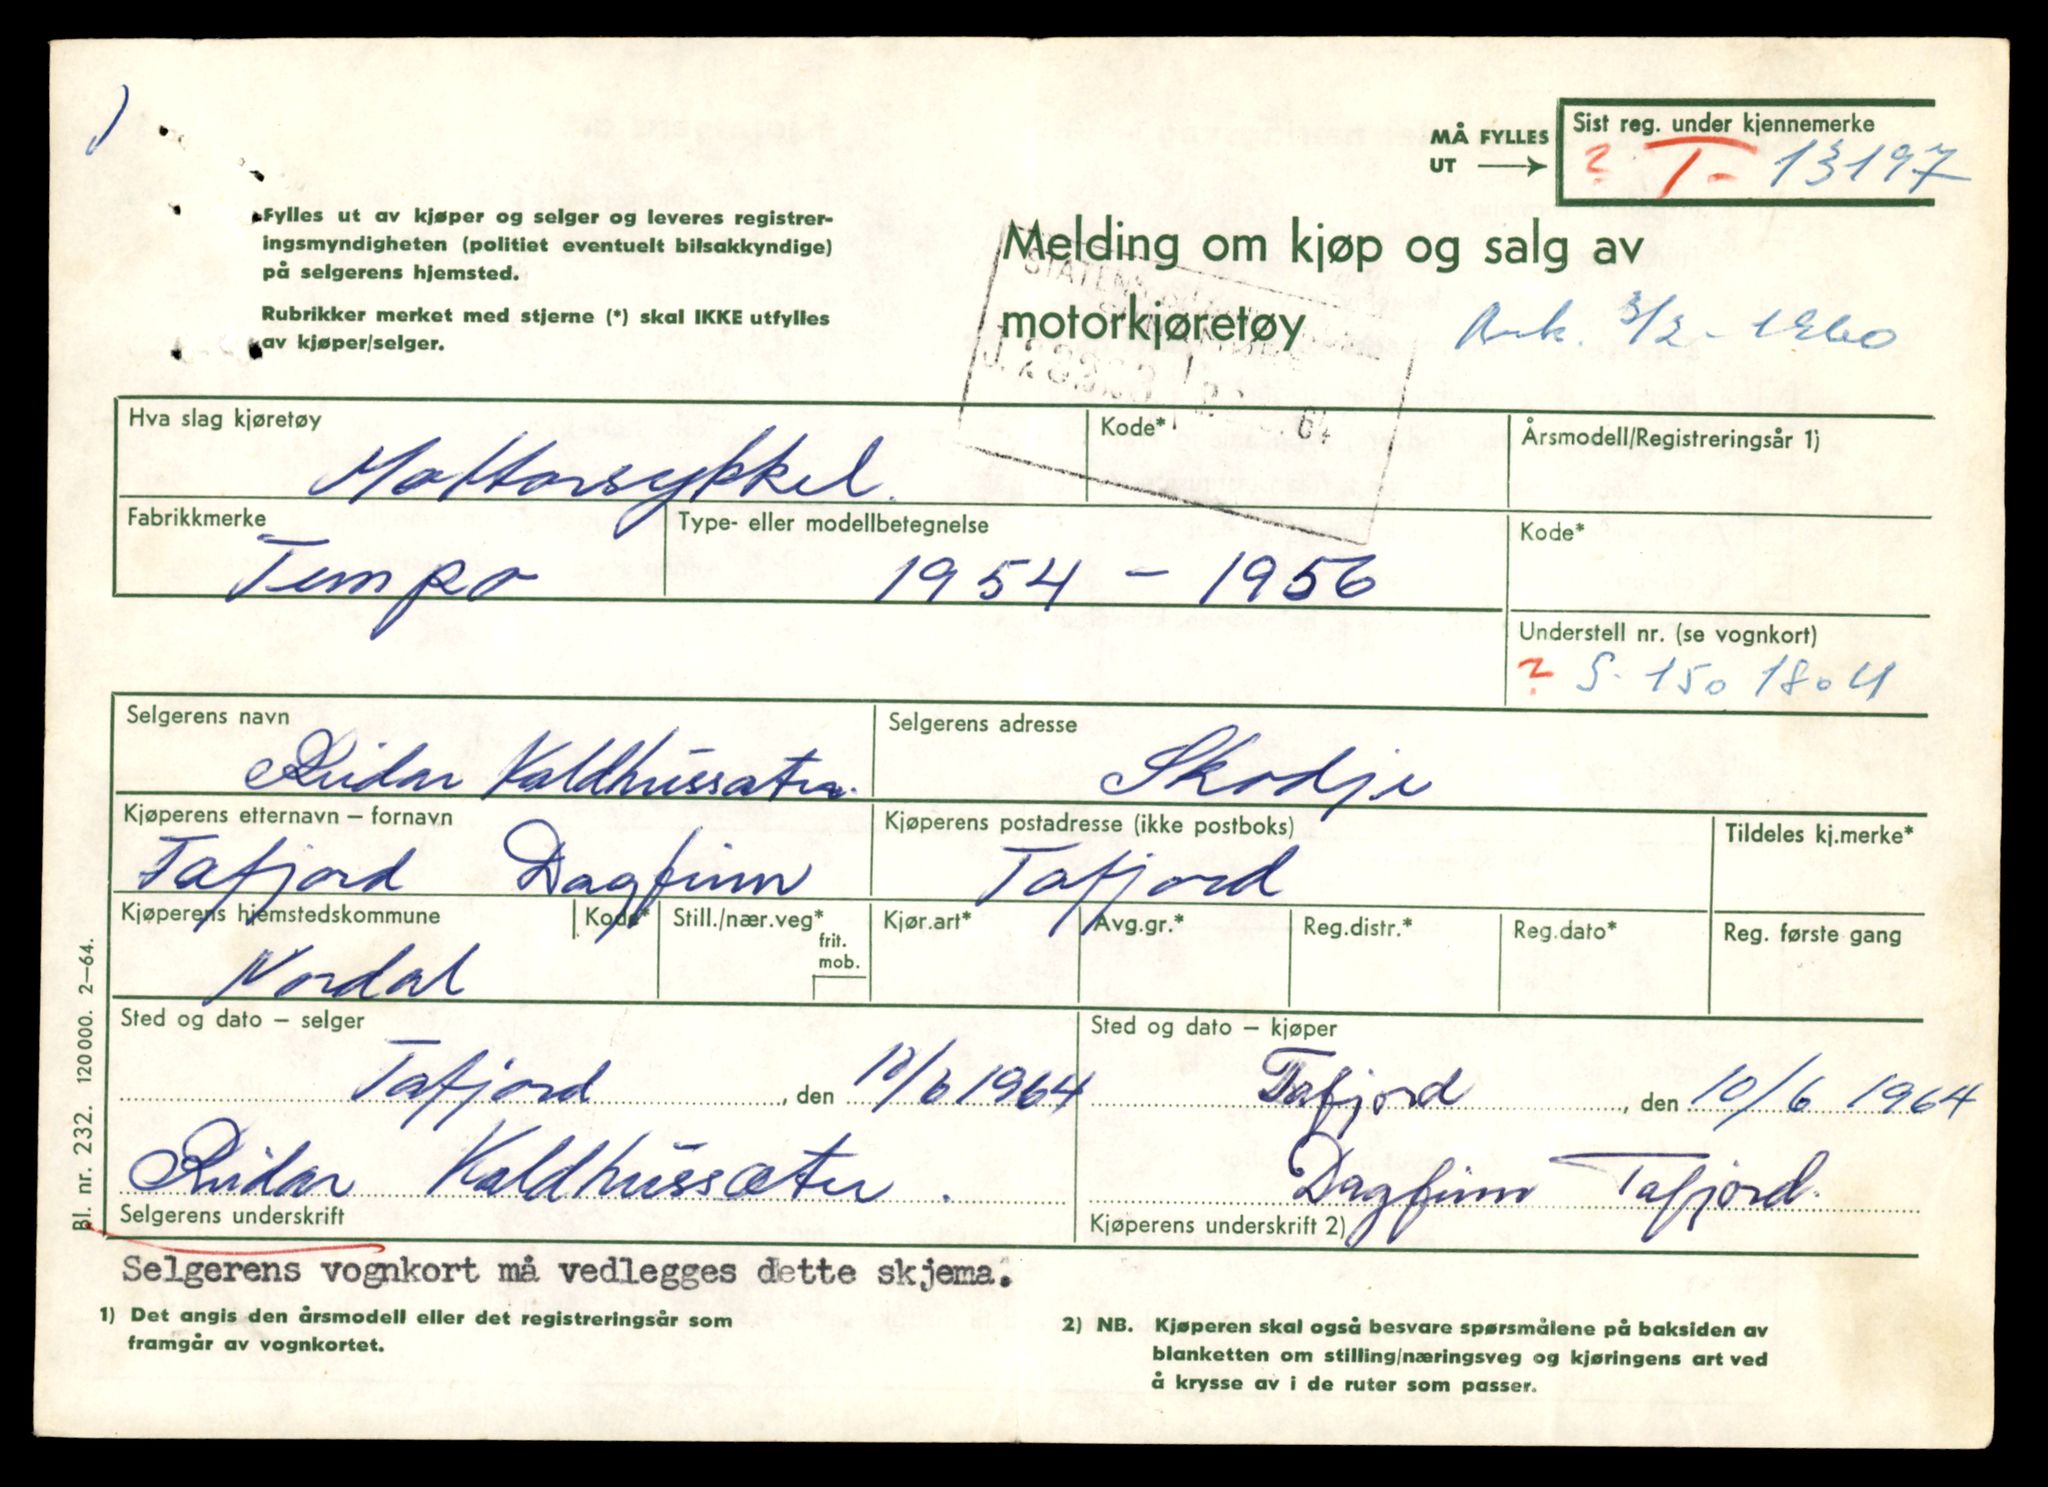 MÅ FYLLES
UT
Sist reg. under kjennemerke
? T- 13197
Fylles ut av kjøper og selger og leveres registrer-
ingsmyndigheten (politiet eventuelt bilsakkyndige)
på selgerens hjemsted.
Rubrikker merket med stjerne (*) skal IKKE utfylles
av kjøper/selger.
Melding om kjøp og salg av
motorkjøretøy
STATENS
64
Hva slag kjøretøy
Mottorsykkel.
Kode*
Årsmodell/Registreringsår 1)
Fabrikkmerke
Tempo
Type- eller modellbetegnelse
1954 - 1956
Kode*
Understell nr. (se vognkort)
? S. 1501804
Selgerens navn
Reidar Kaldhussæter
Selgerens adresse
Skodje
Kjøperens etternavn – fornavn
Tafjord Dagfinn
Kjøperens postadresse (ikke postboks)
Tafjord
Tildeles kj.merke*
Kjøperens hjemstedskommune
Nordal
Kode*
Still./nær.veg*
frit.
mob.
Kjør.art*
Avg.gr.*
Reg.distr.*
Reg.dato*
Reg. første gang
Sted og dato – selger
Tafjord, den 10/6 1964
Reidar Kaldhussæter.
Selgerens underskrift
Sted og dato – kjøper
Tafjord, den 10/6 1964
Dagfinn Tafjord.
Kjøperens underskrift 2)
Bl. nr. 232. 120000. 2–64.
Selgerens vognkort må vedlegges dette skjema.
1) Det angis den årsmodell eller det registreringsår som
framgår av vognkortet.
2) NB. Kjøperen skal også besvare spørsmålene på baksiden av
blanketten om stilling/næringsveg og kjøringens art ved
å krysse av i de ruter som passer.